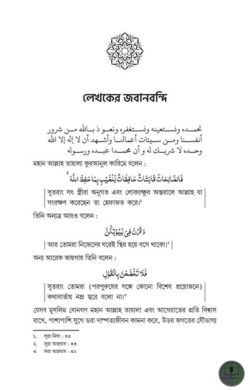 লেখকের জবানবন্দি
نحمده ونستعينه ونستغفره ونعوذ بالله من شرور
أنفسنا ومن سيئات أعمالنا وأشهد أن لا إله إلا الله
وحده لا شريك له و أن محمدا عبده ورسوله
মহান আল্লাহ তায়ালা কুরআনুল কারিমে বলেন :
فَالصّٰلِحٰتُ قٰنِتٰتٌ حٰفِظٰتٌ لِّلْغَيْبِ بِمَا حَفِظَ اللّٰهُ
সুতরাং সৎ স্ত্রীরা অনুগত এবং লোকচক্ষুর অন্তরালে আল্লাহ যা
সংরক্ষণ করেছেন তা হেফাজত করে।১
তিনি অন্যত্র আরও বলেন :
وَقَرْنَ فِىْ بُيُوْتِكُنَّ
আর তোমরা নিজেদের ঘরেই স্থির হয়ে বসে থাকো।২
অন্য আরেক জায়গায় তিনি বলেন :
فَلَا تَخْضَعْنَ بِالْقَوْلِ
সুতরাং তোমরা (পরপুরুষের সঙ্গে কোনো বিশেষ প্রয়োজনে)
কথাবার্তায় নম্র হয়ে বলো না।৩
যেসব মুসলিম বোনগণ মহান আল্লাহ তায়ালা এবং আখেরাতের প্রতি বিশ্বাস
রাখে, পাশাপাশি সুখে ভরা দাম্পত্যজীবন কামনা করে, উভয় জগতের সৌভাগ্য
১. সুরা নিসা : ৩৪
২. সুরা আহযাব : ৩৩
৩. সুরা আহযাব : ৩২